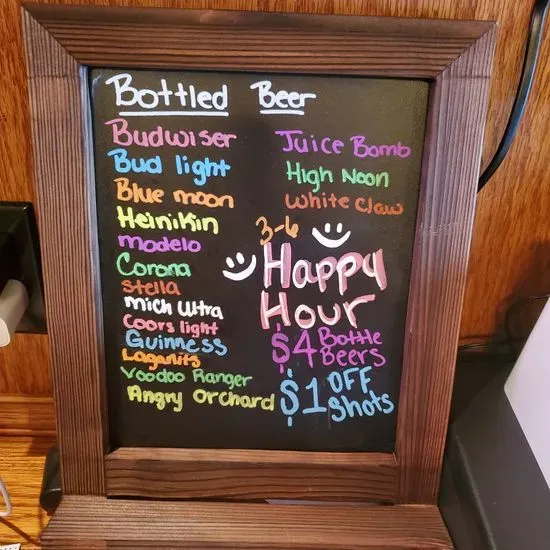 Bottled Beer
Budwiser
Bud light
Blue moon
Heinikin
modelo
Corona
Stella
Mich Ultra
Coors light
Guinness
Laganits
Voodoo Ranger
Angry Orchard
Juice Bomb
High Noon
White Claw
3-6
Happy
Hour
$4 Bottle
Beers
$1 OFF
Shots